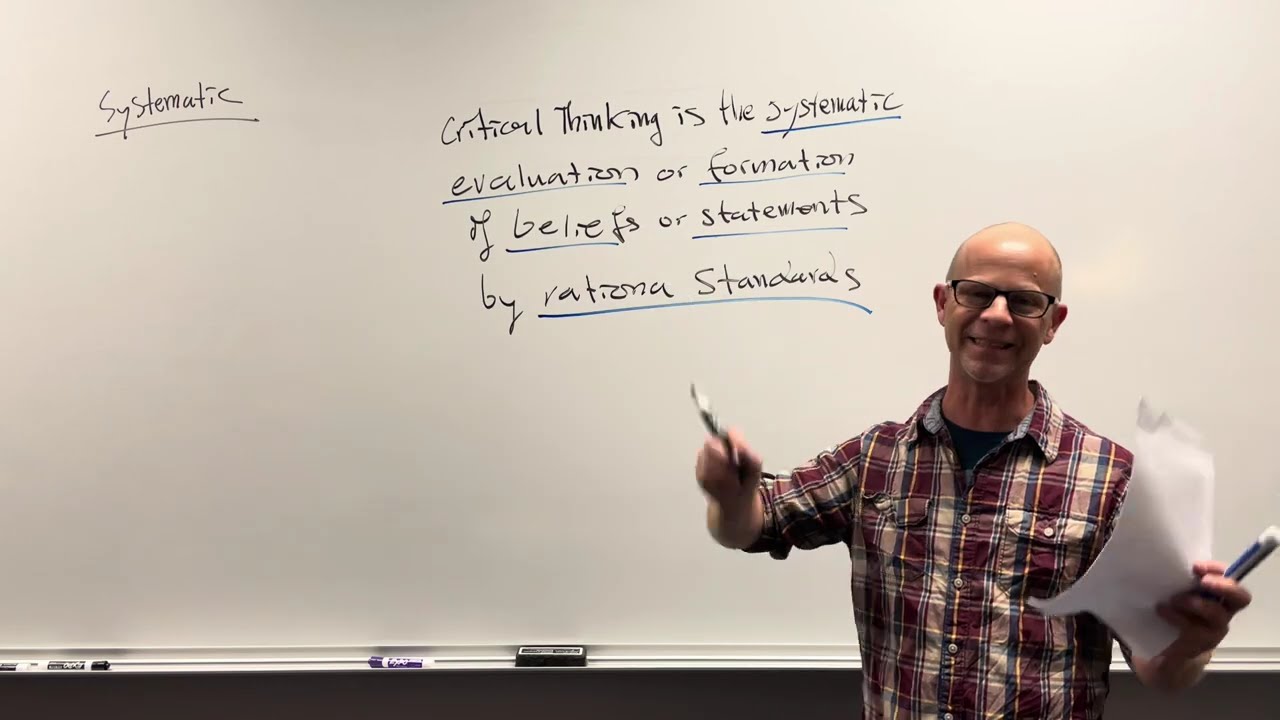 Systematic
Critical Thinking is the systematic
evaluation or formation
of beliefs or statements
by rationa Standards
EXPO